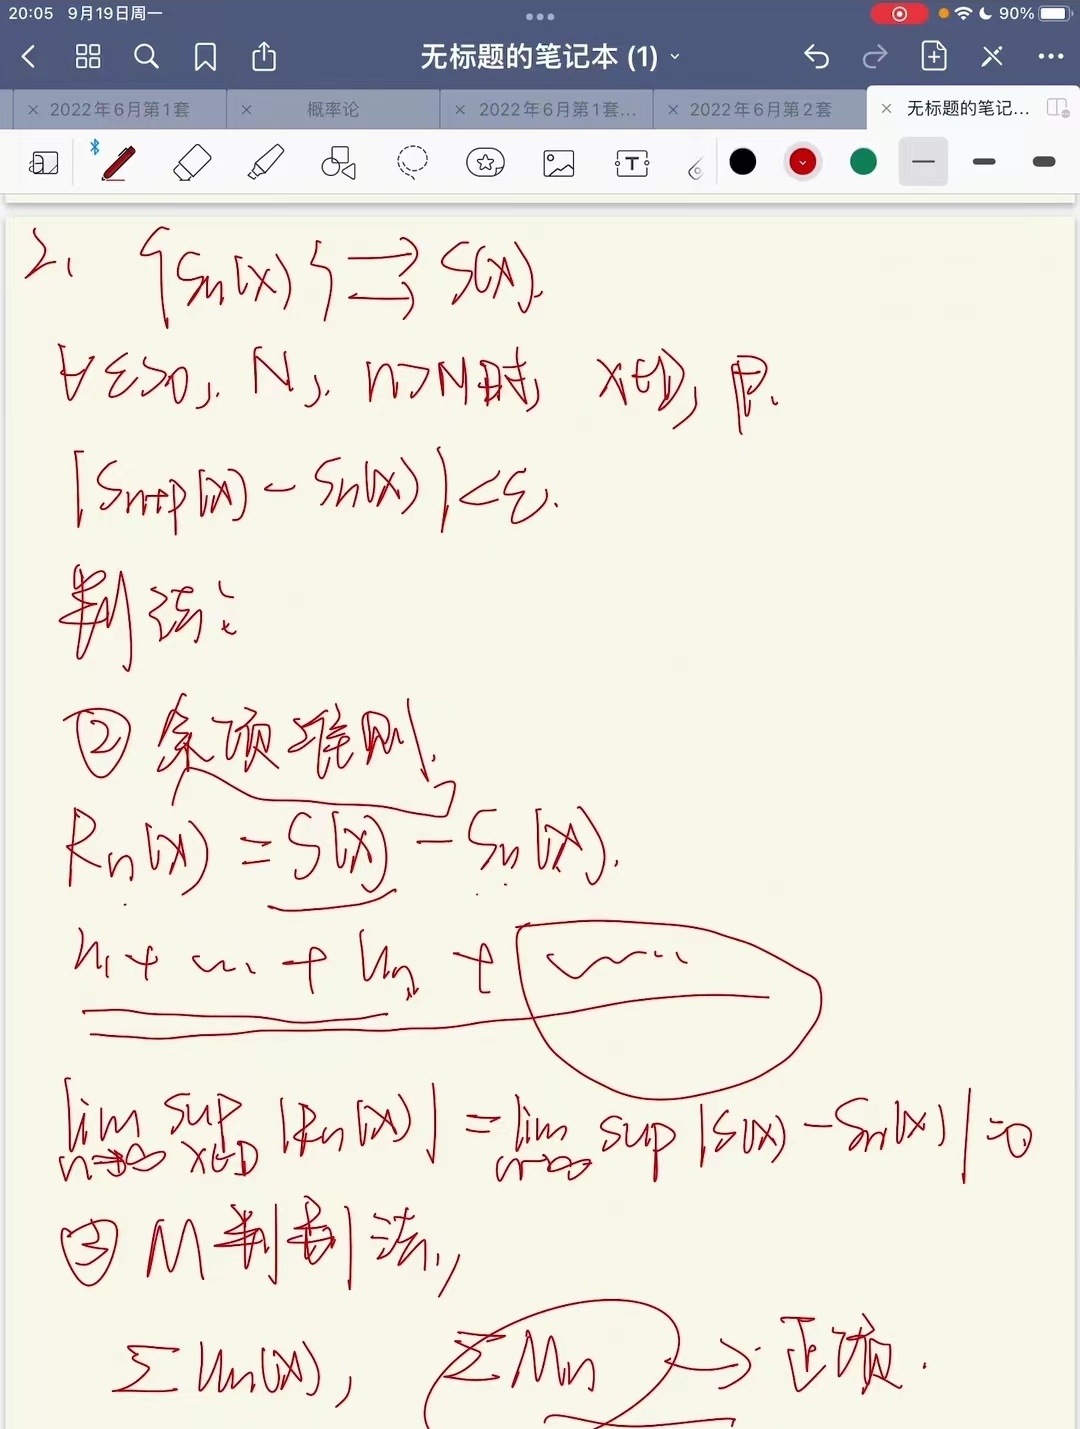 20:05 9月19日周一 90%
无标题的笔记本 (1)
2022年6月第1套 概率论 2022年6月第1套... 2022年6月第2套 无标题的笔记...
2. {Sn(x)} ⇉ S(x).
∀ε>0, N, n>N时, x∈D, P.
|Sn+p(x) - Sn(x)| < ε.
判法:
② 余项准则.
Rn(x) = S(x) - Sn(x).
u1 + ... + un + ......
lim n→∞ sup x∈D |Rn(x)| = lim n→∞ sup |S(x) - Sn(x)| = 0
③ M 判别法,
∑ un(x), ∑ Mn → 正项.